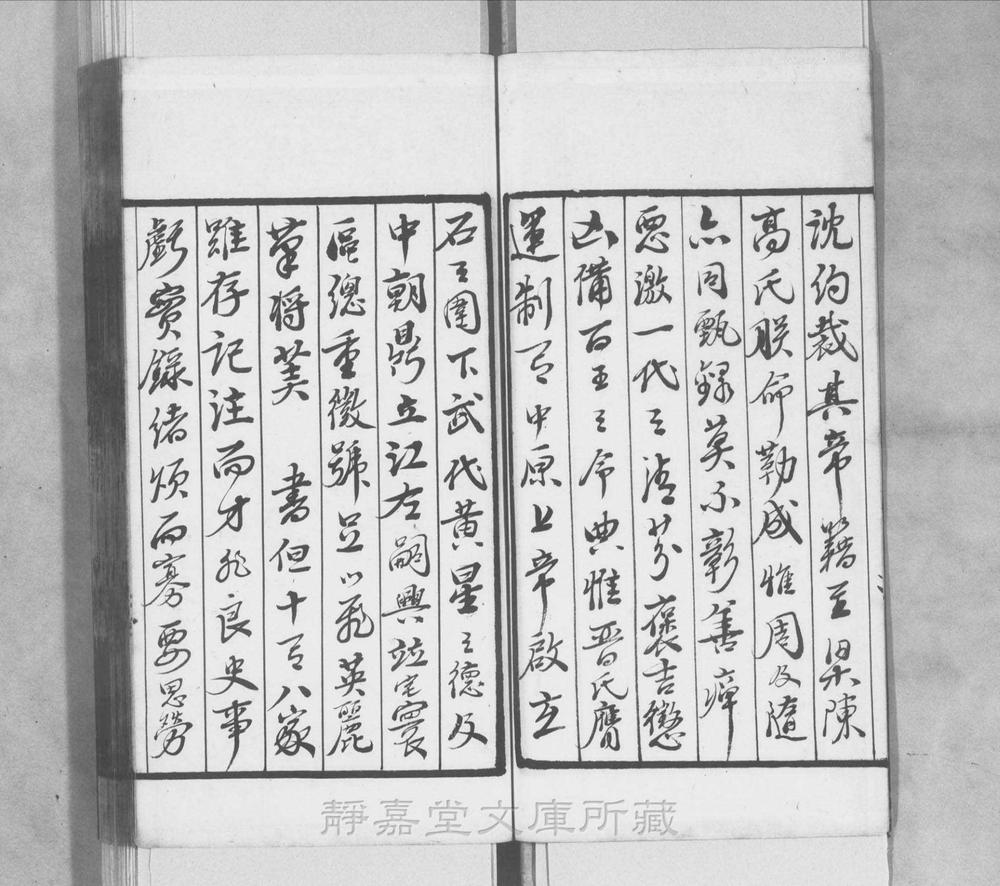 沈約裁其帝籍至梁陳
高氏朕命勒成惟周及隨
亦同甄錄莫不彰善癉
惡激一代之清芬褒吉懲
凶備百王之令典惟晉氏膺
運制有中原上帝啟玄
石之圖下武代黃星之德及
中朝鼎立江左嗣興竝宅寰
區總重徽號足以飛英麗
筆將美　書但十有八家
雖存記注而才非良史事
虧實錄緒煩而寡要思勞
靜嘉堂文庫所藏